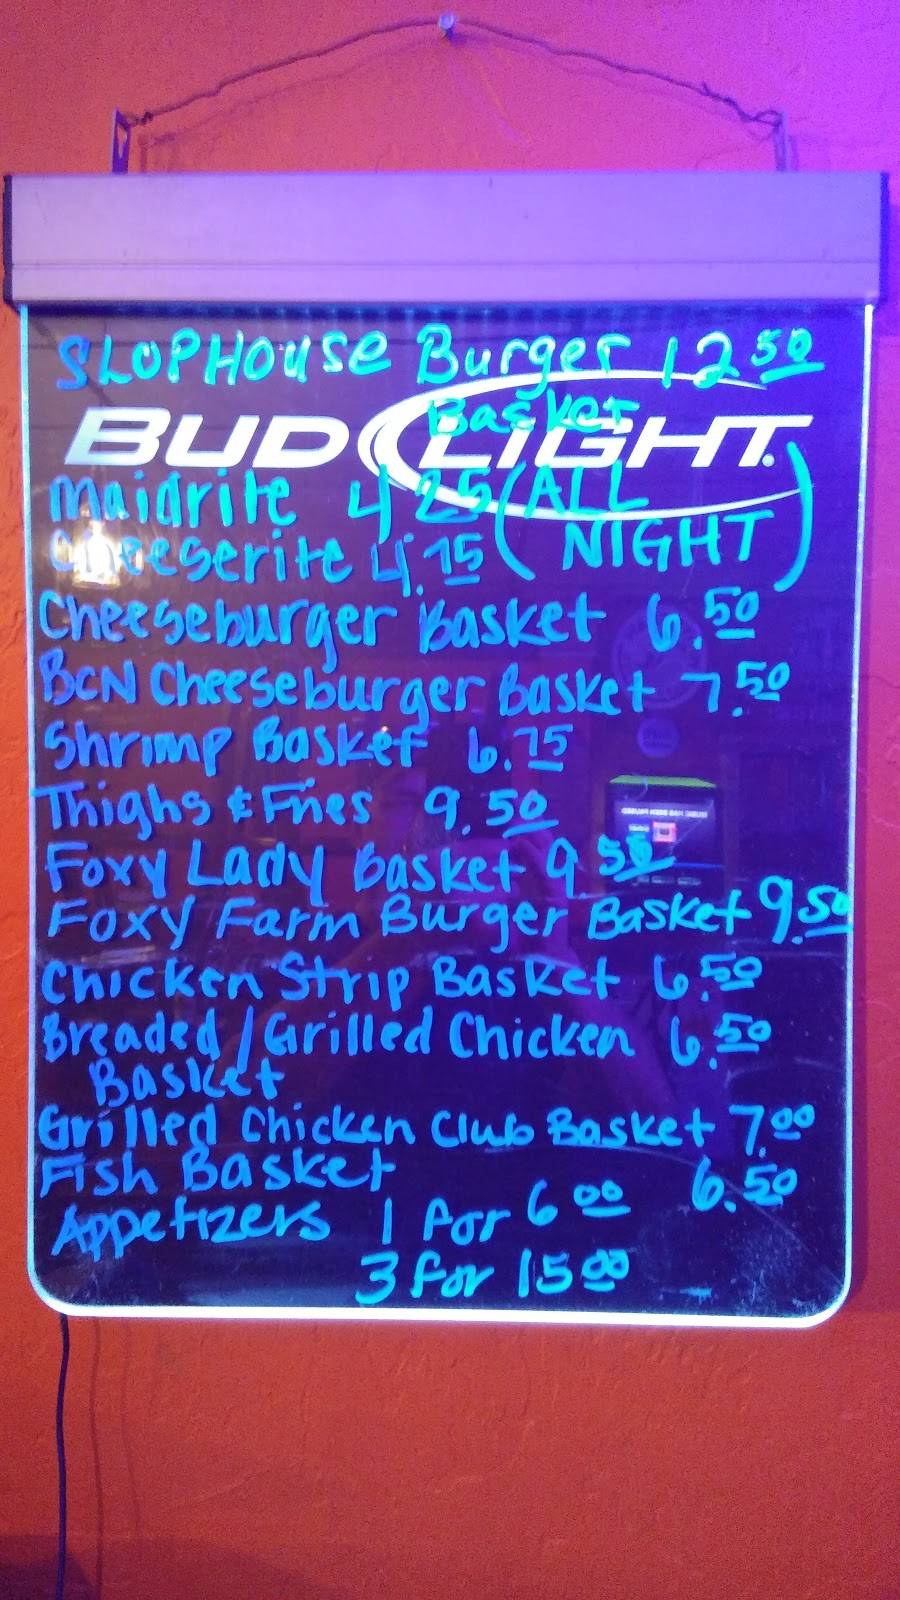 SLOPHOUSE Burger 12 50
Basket
BUD LIGHT
Maidrite 4 25 (ALL
Cheeserite 4.75 NIGHT)
Cheeseburger Basket 6.50
BCN Cheeseburger Basket 7.50
Shrimp Basket 6.75
Thighs & Fries 9.50
Foxy Lady Basket 9 50
Foxy Farm Burger Basket 9.50
Chicken Strip Basket 6.50
Breaded/Grilled Chicken 6.50
Basket
Grilled Chicken Club Basket 7.00
Fish Basket 6.50
Appetizers 1 for 6 00
3 for 15 00